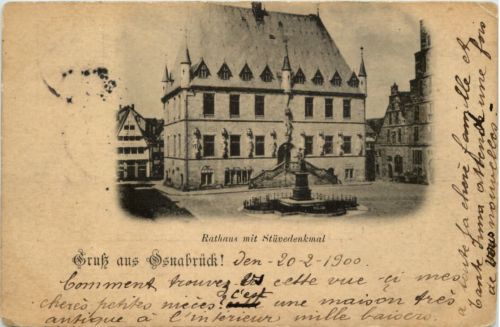 Rathaus mit Stüvedenkmal
Gruß aus Osnabrück! den - 20-2-1900.
Comment trouvez cette vue ci mes
cheres petites nièces c'est une maison très
antique à l'interieur mille baisers.
a toute la chère famille et
Tante Emma attend une fois
de vos nouvelles.